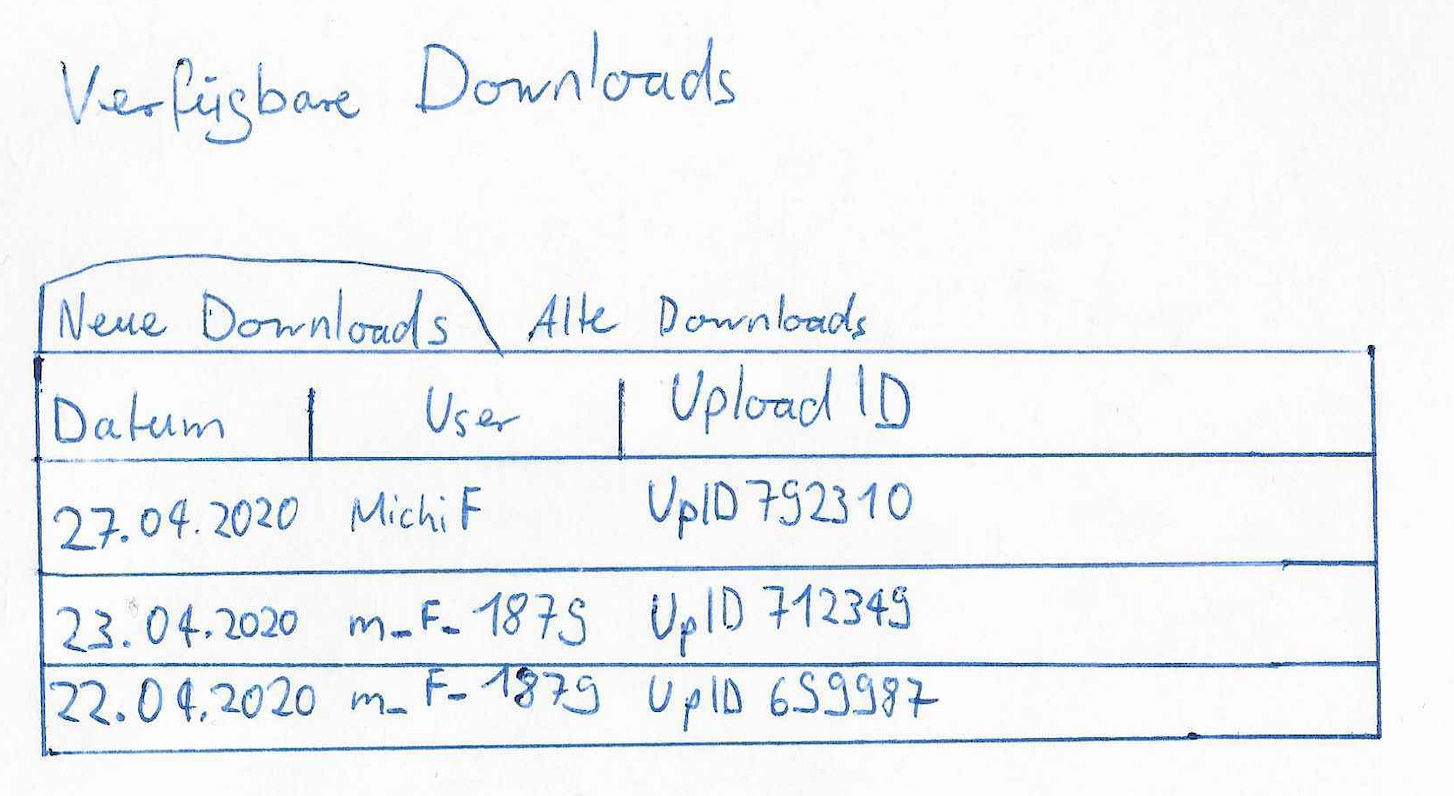 Verfügbare Downloads
Neue Downloads Alte Downloads
Datum User Upload ID
27.04.2020 MichiF UpID 792310
23.04.2020 m_F_1879 UpID 712349
22.04.2020 m_F_1879 UpID 659987